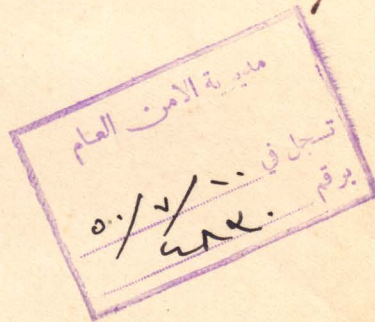 مديرية الامن العام
تسجل في ٥٠/٧/١٠
برقم ٤٨٣٠